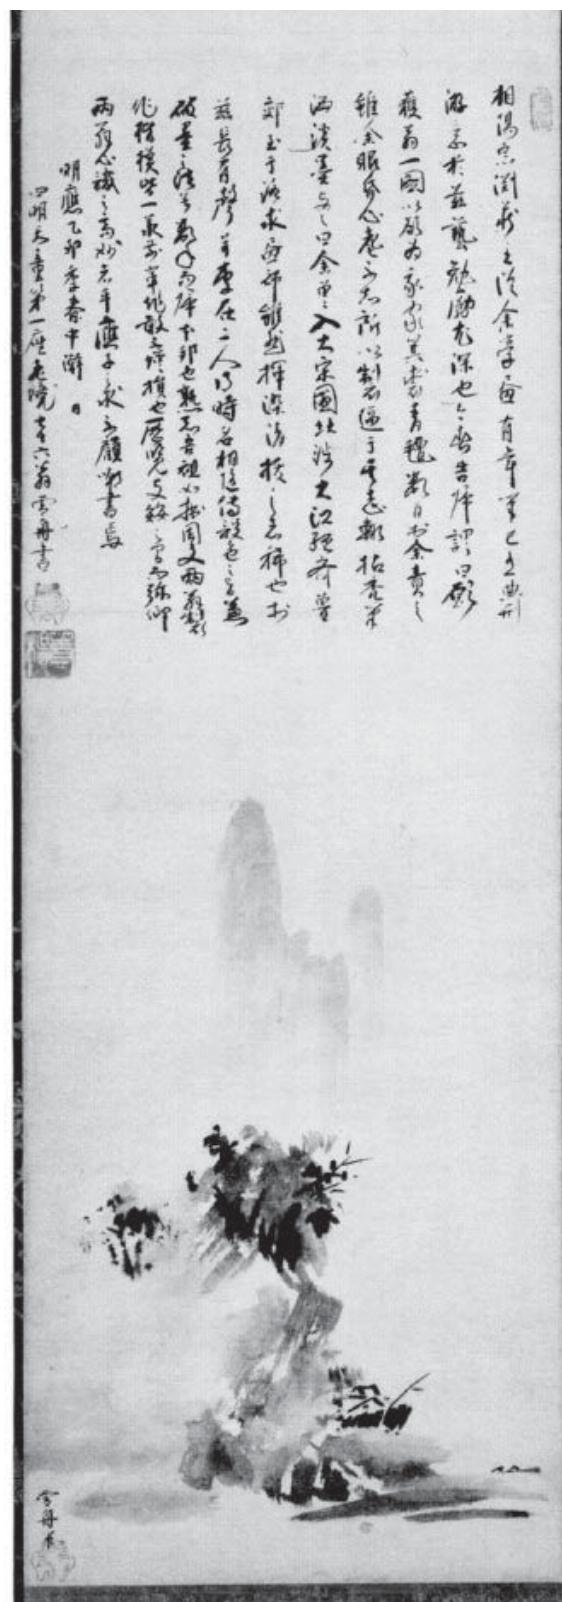 相陽宗淵蔵主從余學畫有年筆已有典刑
游意於茲藝勉勵尤深也今春告歸謂曰願
獲翁一圖以欲為我家箕裘青氈數日於余責之
雖余眼昏心耄不知所以製逼于其志輙拈禿筆
洒淡墨与之曰余曽入大宋國北渉大江經齊魯
郊至于洛求畫師雖然揮染清拔之者稀也於
茲長有聲并李在二人得時名相随傳設色之旨兼
破墨之法兮數年而歸本邦也熟知吾祖如拙周文兩翁製
作楷模皆一承前輩作敢不増損也歴覽支倭之間而弥仰
兩翁心識之高妙者乎應子之求不顧嘲書焉
明應乙卯季春中澣日
四明天童第一座老境七十六翁雪舟書
雪舟